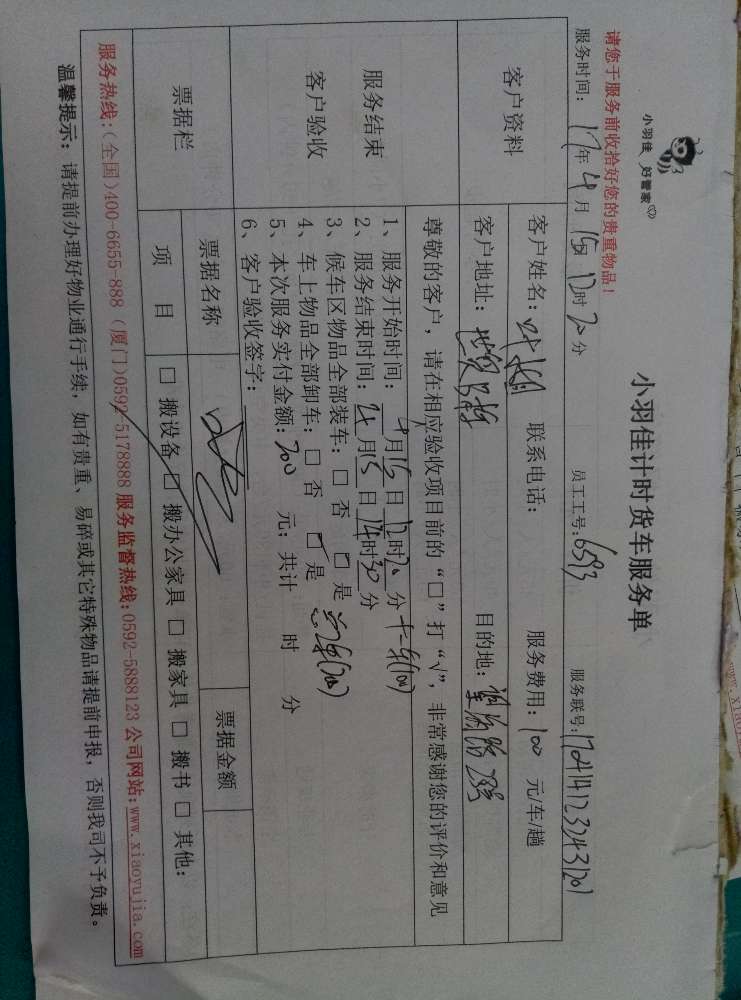 小羽佳 好管家
小羽佳计时货车服务单
请您于服务前收拾好您的贵重物品！
服务时间：17年4月15日12时20分 员工工号：6593 服务联号：1704141232431201
客户资料
客户姓名：叶 联系电话： 服务费用：100 元/车/趟
客户地址：世贸 目的地：
服务结束
客户验收
尊敬的客户，请在相应验收项目前的“□”打“√”，非常感谢您的评价和意见
1、服务开始时间：4月15日12时20分
2、服务结束时间：4月15日14时30分
3、候车区物品全部装车：□ 否 □ 是
4、车上物品全部卸车：□ 否 □ 是
5、本次服务实付金额：200 元；共计 时 分
6、客户验收签字：
票据栏
票据名称 票据金额
项 目 □ 搬设备 □ 搬办公家具 □ 搬家具 □ 搬书 □ 其他：
服务热线：（全国）400-6655-888（厦门）0592-5178888 服务监督热线：0592-5888123 公司网站：www.xiaoyujia.com
温馨提示：请提前办理好物业通行手续，如有贵重、易碎或其它特殊物品请提前申报，否则我司不予负责。